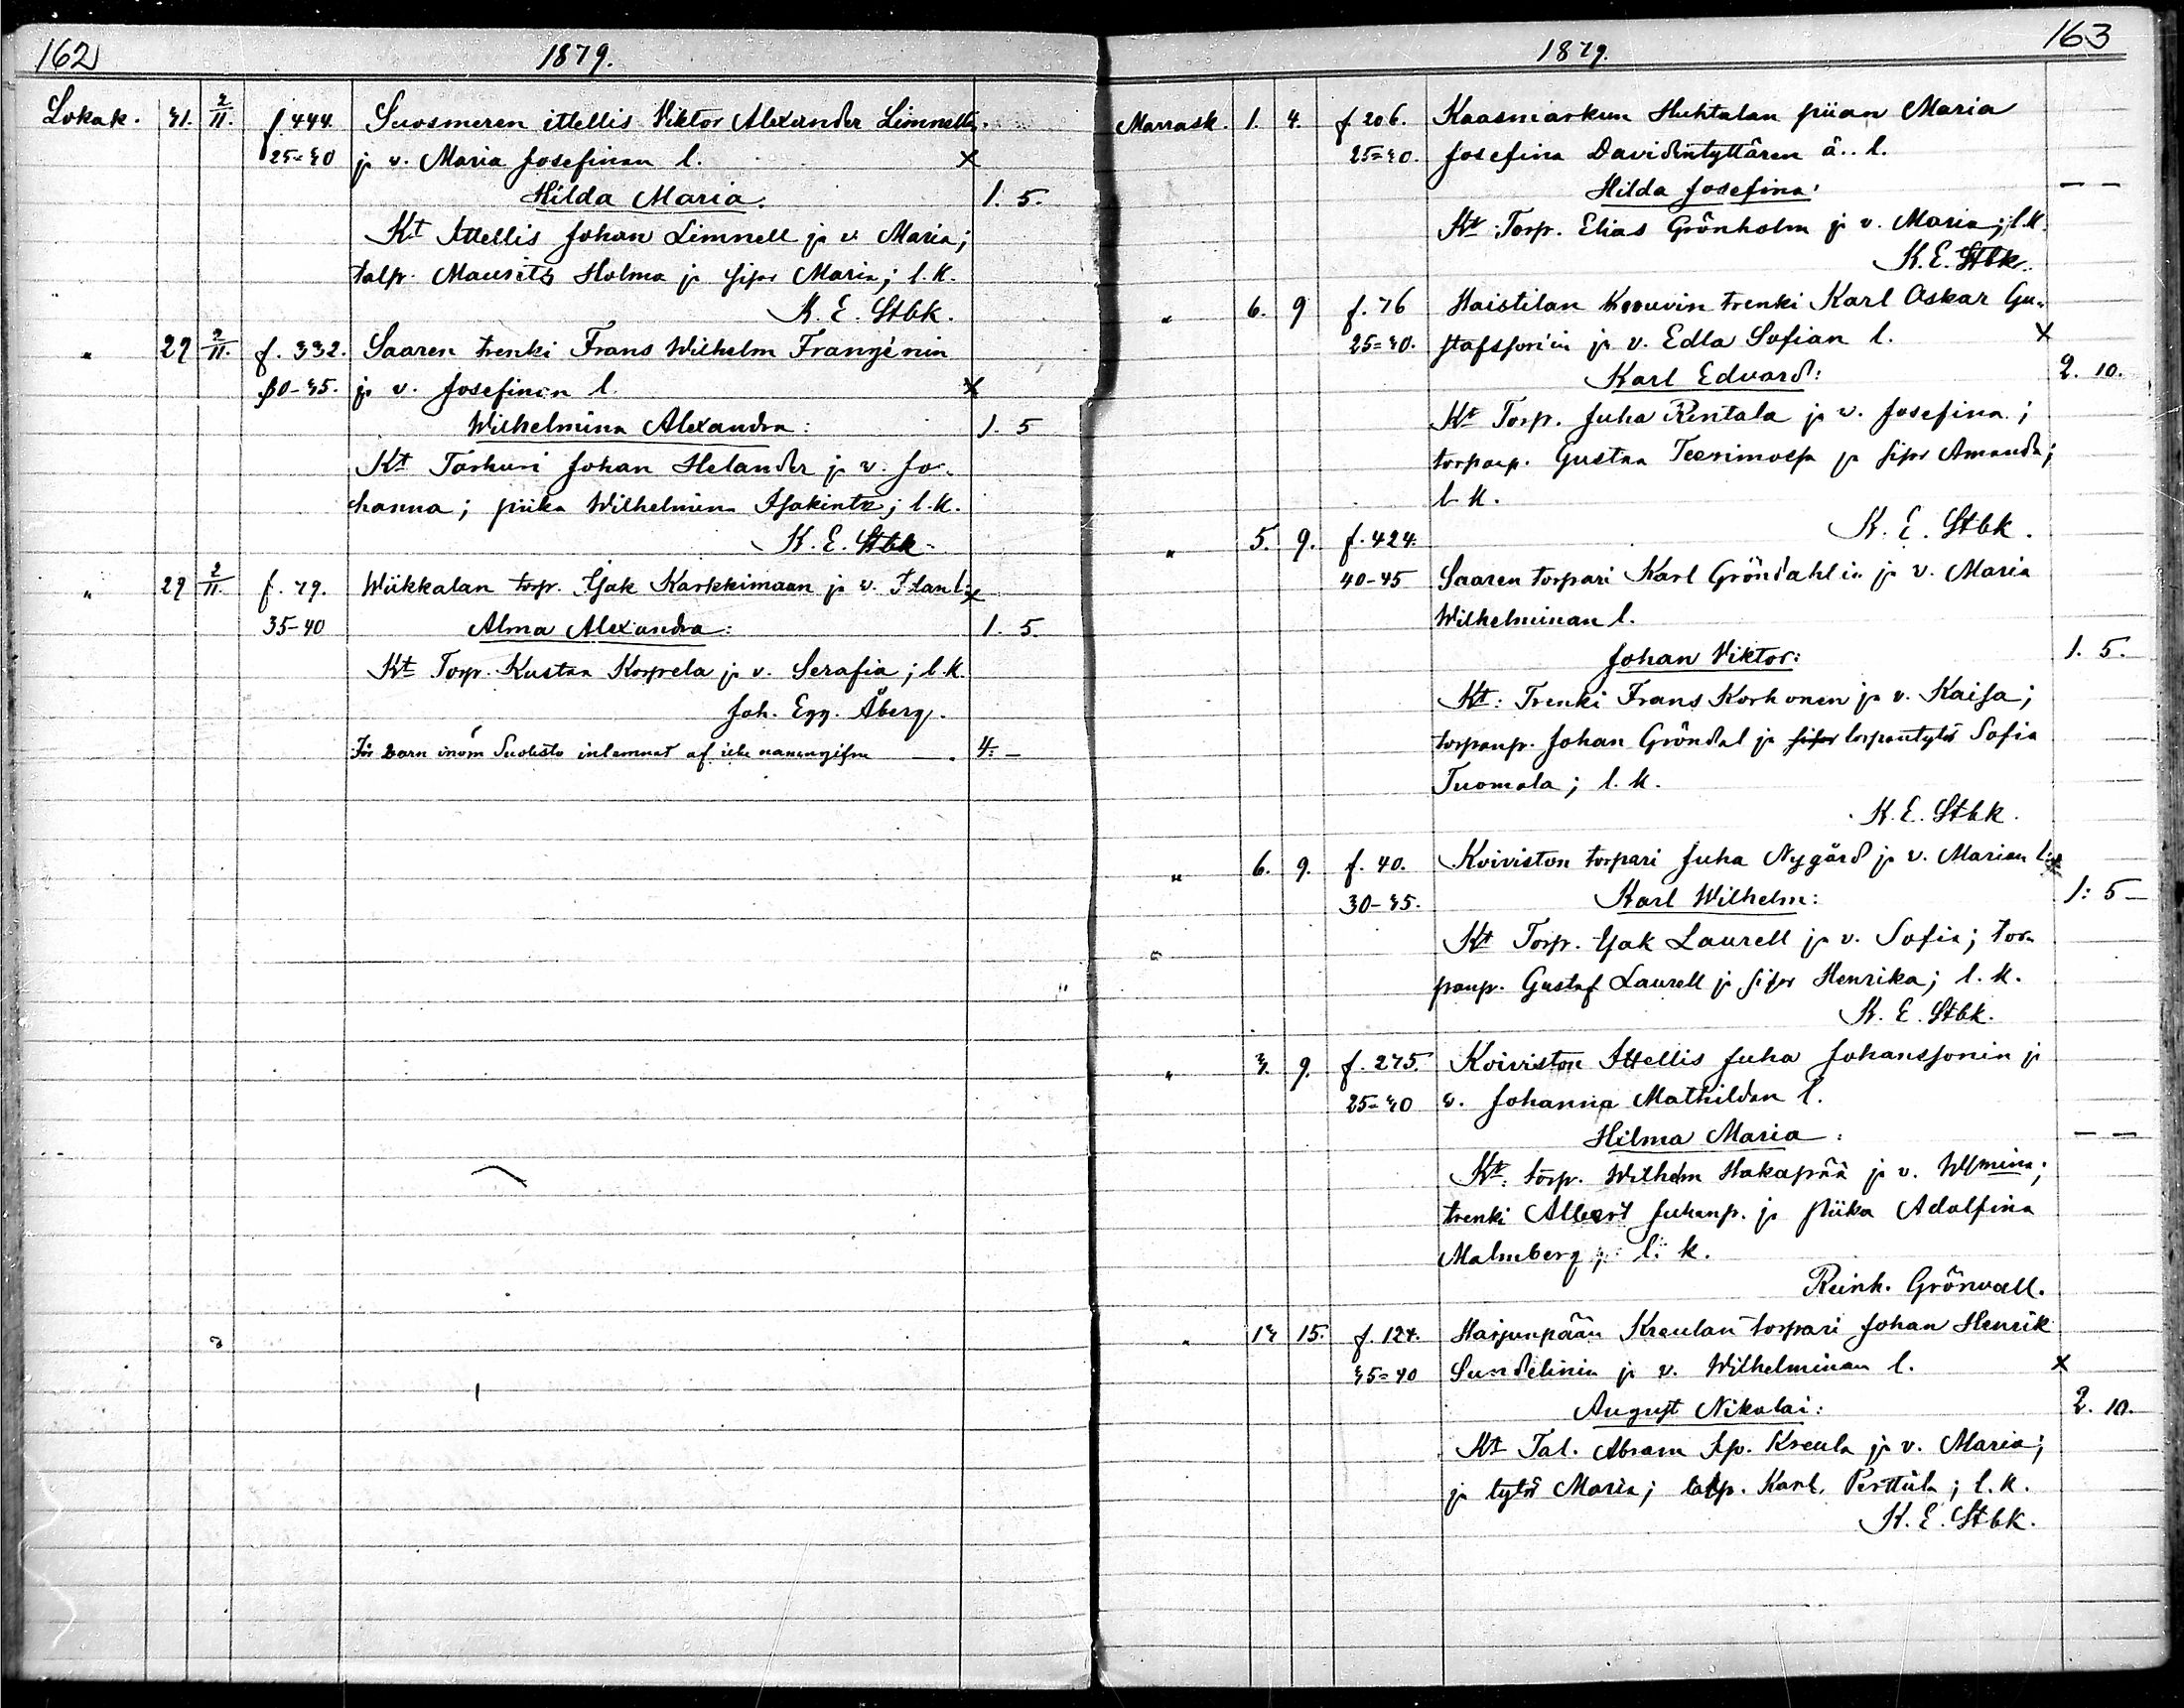 162 1879.
Lokak. 31. 2/11. f 444. Suosmeren ittellis Viktor Alexander Limnellin
25-30 ja v. Maria Josefinan l. x
Hilda Maria. 1. 5.
Kt Ittellis Johan Limnell ja v. Maria;
talp. Maurits Holma ja sisar Maria; l. k.
K. E. Stbk.
" 29 2/11. f. 332. Saaren trenki Frans Wilhelm Frangénin
30-35. ja v. Josefinan l. x
Wilhelmina Alexandra: 1. 5
Kt Torhuri Johan Helander ja v. Jo-
hanna; piika Wilhelmina Isakint; l. k.
K. E. Stbk.
" 29 2/11. f. 79. Wiikkalan torp. Isak Karkkimaan ja v. l. x
35-40 Alma Alexandra: 1. 5.
Kt Torp. Kustaa Korpela ja v. Serafia; l. k.
Joh. Egg. Åberg.
För barn inom Suodisto inlemnat af icke namngifne —. 4: —
1879. 163
Marrask. 1. 4. f. 206. Kaasmarkun Huhtalan piian Maria
25-30. Josefina Davidintyttären ä. l.
Hilda Josefina: — —
Kt Torp. Elias Grönholm ja v. Maria; l. k.
K. E. Stbk.
" 6. 9 f. 76 Haistilan Krouvin trenki Karl Oskar Gu-
25-30. stafsson'in ja v. Edla Sofian l. x
Karl Edvard: 2. 10.
Kt Torp. Juha Rentala ja v. Josefina;
torpanp. Gustaa Teerimossa ja sisar Amanda;
l. k.
K. E. Stbk.
" 5. 9. f. 424.
40-45 Saaren torpari Karl Gröndahlin ja v. Maria
Wilhelminan l.
Johan Viktor: 1. 5.
Kt: Trenki Frans Korhonen ja v. Kaisa;
torpanp. Johan Gröndal ja sisar torpantytö Sofia
Tuomola; l. k.
K. E. Stbk.
" 6. 9. f. 40. Koiviston torpari Juha Nygård ja v. Marian l: x
30-35. Karl Wilhelm: 1: 5 —
Kt Torp. Isak Laurell ja v. Sofia; tor-
panp. Gustaf Laurell ja sisar Henrika; l. k.
K. E. Stbk.
" 3. 9. f. 275. Koiviston Ittellis Juha Johanssonin ja
25-30 v. Johanna Mathildan l.
Hilma Maria: — —
Kt: torp. Wilhelm Hakapää ja v. Wlmina;
trenki Albert Juhanp. ja piika Adolfina
Malmberg; l. k.
Reinh. Grönvall.
" 13 15. f. 124. Harjunpään Kreulan torpari Johan Henrik
35-40 Sundelinin ja v. Wilhelminan l. x
August Nikolai: 2. 10.
Kt Tal. Abram Kreula ja v. Maria;
ja tytö Maria; talp. Karl. Perttula; l. k.
K. E. Stbk.